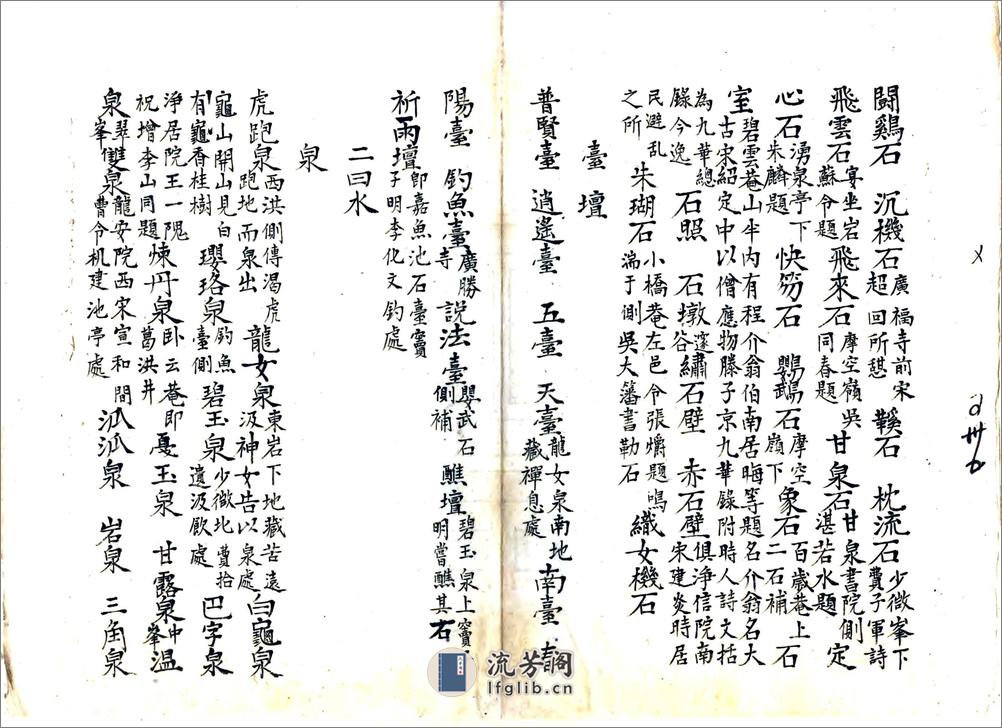 鬭鷄石 沉機石廣福寺前宋超回所憩 鞵石 枕流石少微峯下費子軍詩
飛雲石宴坐岩蘇令題 飛來石摩空嶺吳同春題 甘泉石甘泉書院側湛若水題 定
心石湧泉亭下朱麟題 快笏石 鸚鵡石摩空嶺下 象石百歲菴上二石補 石
室碧雲菴山半内有程介翁伯南居晦等題名介翁名大古宋紹定中以僧應物滕子京九華錄附時人詩文括
為九華總錄今逸 石照 石墩邃谷 繡石壁 赤石壁俱淨信院南宋建炎時居
民避乱之所 朱瑚石小橋菴左邑令張爝題鳴湍于側吳大藩書勒石 織女機石
臺 壇
普賢臺 逍遙臺 五臺 天臺龍女泉南地藏禪息處 南臺
陽臺 釣魚臺廣勝寺 説法臺嬰武石側補 醮壇碧玉泉上竇明嘗醮其右
祈雨壇即嘉魚池石臺竇子明李化文釣處
二曰水
泉
虎跑泉西洪側傳渴虎跑地而泉出 龍女泉東岩下地藏苦遠汲神女告以泉處 白龜泉
龜山開山見白有龜香桂樹 瓔珞泉釣魚臺側 碧玉泉少微北費拾遺汲飲處 巴字泉
淨居院王一隗祝增李山同題 煉丹泉卧云菴即葛洪井 戞玉泉 甘露泉中峯 溫
泉翠峯 雙泉龍安院西宋宣和間曹令机建池亭處 泒泒泉 岩泉 三角泉
流芳閣
lfglib.cn